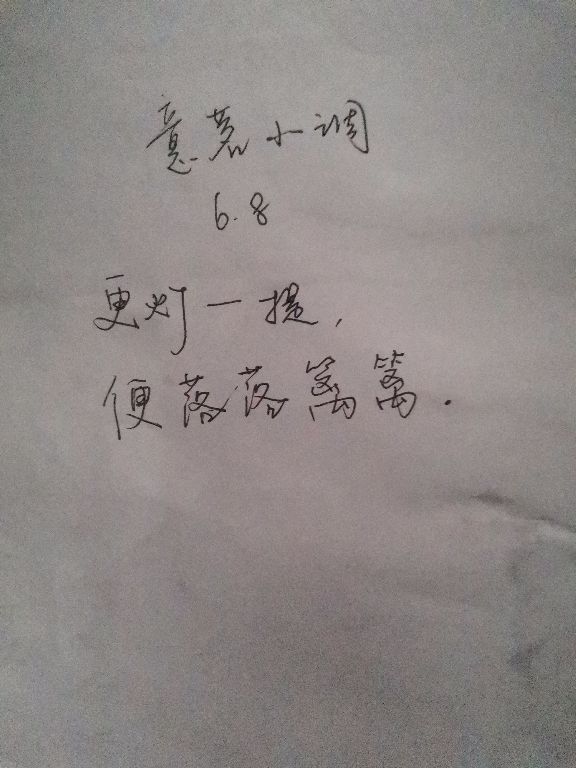 意茗小调
6.8
更灯一提,
便落落篱篱.